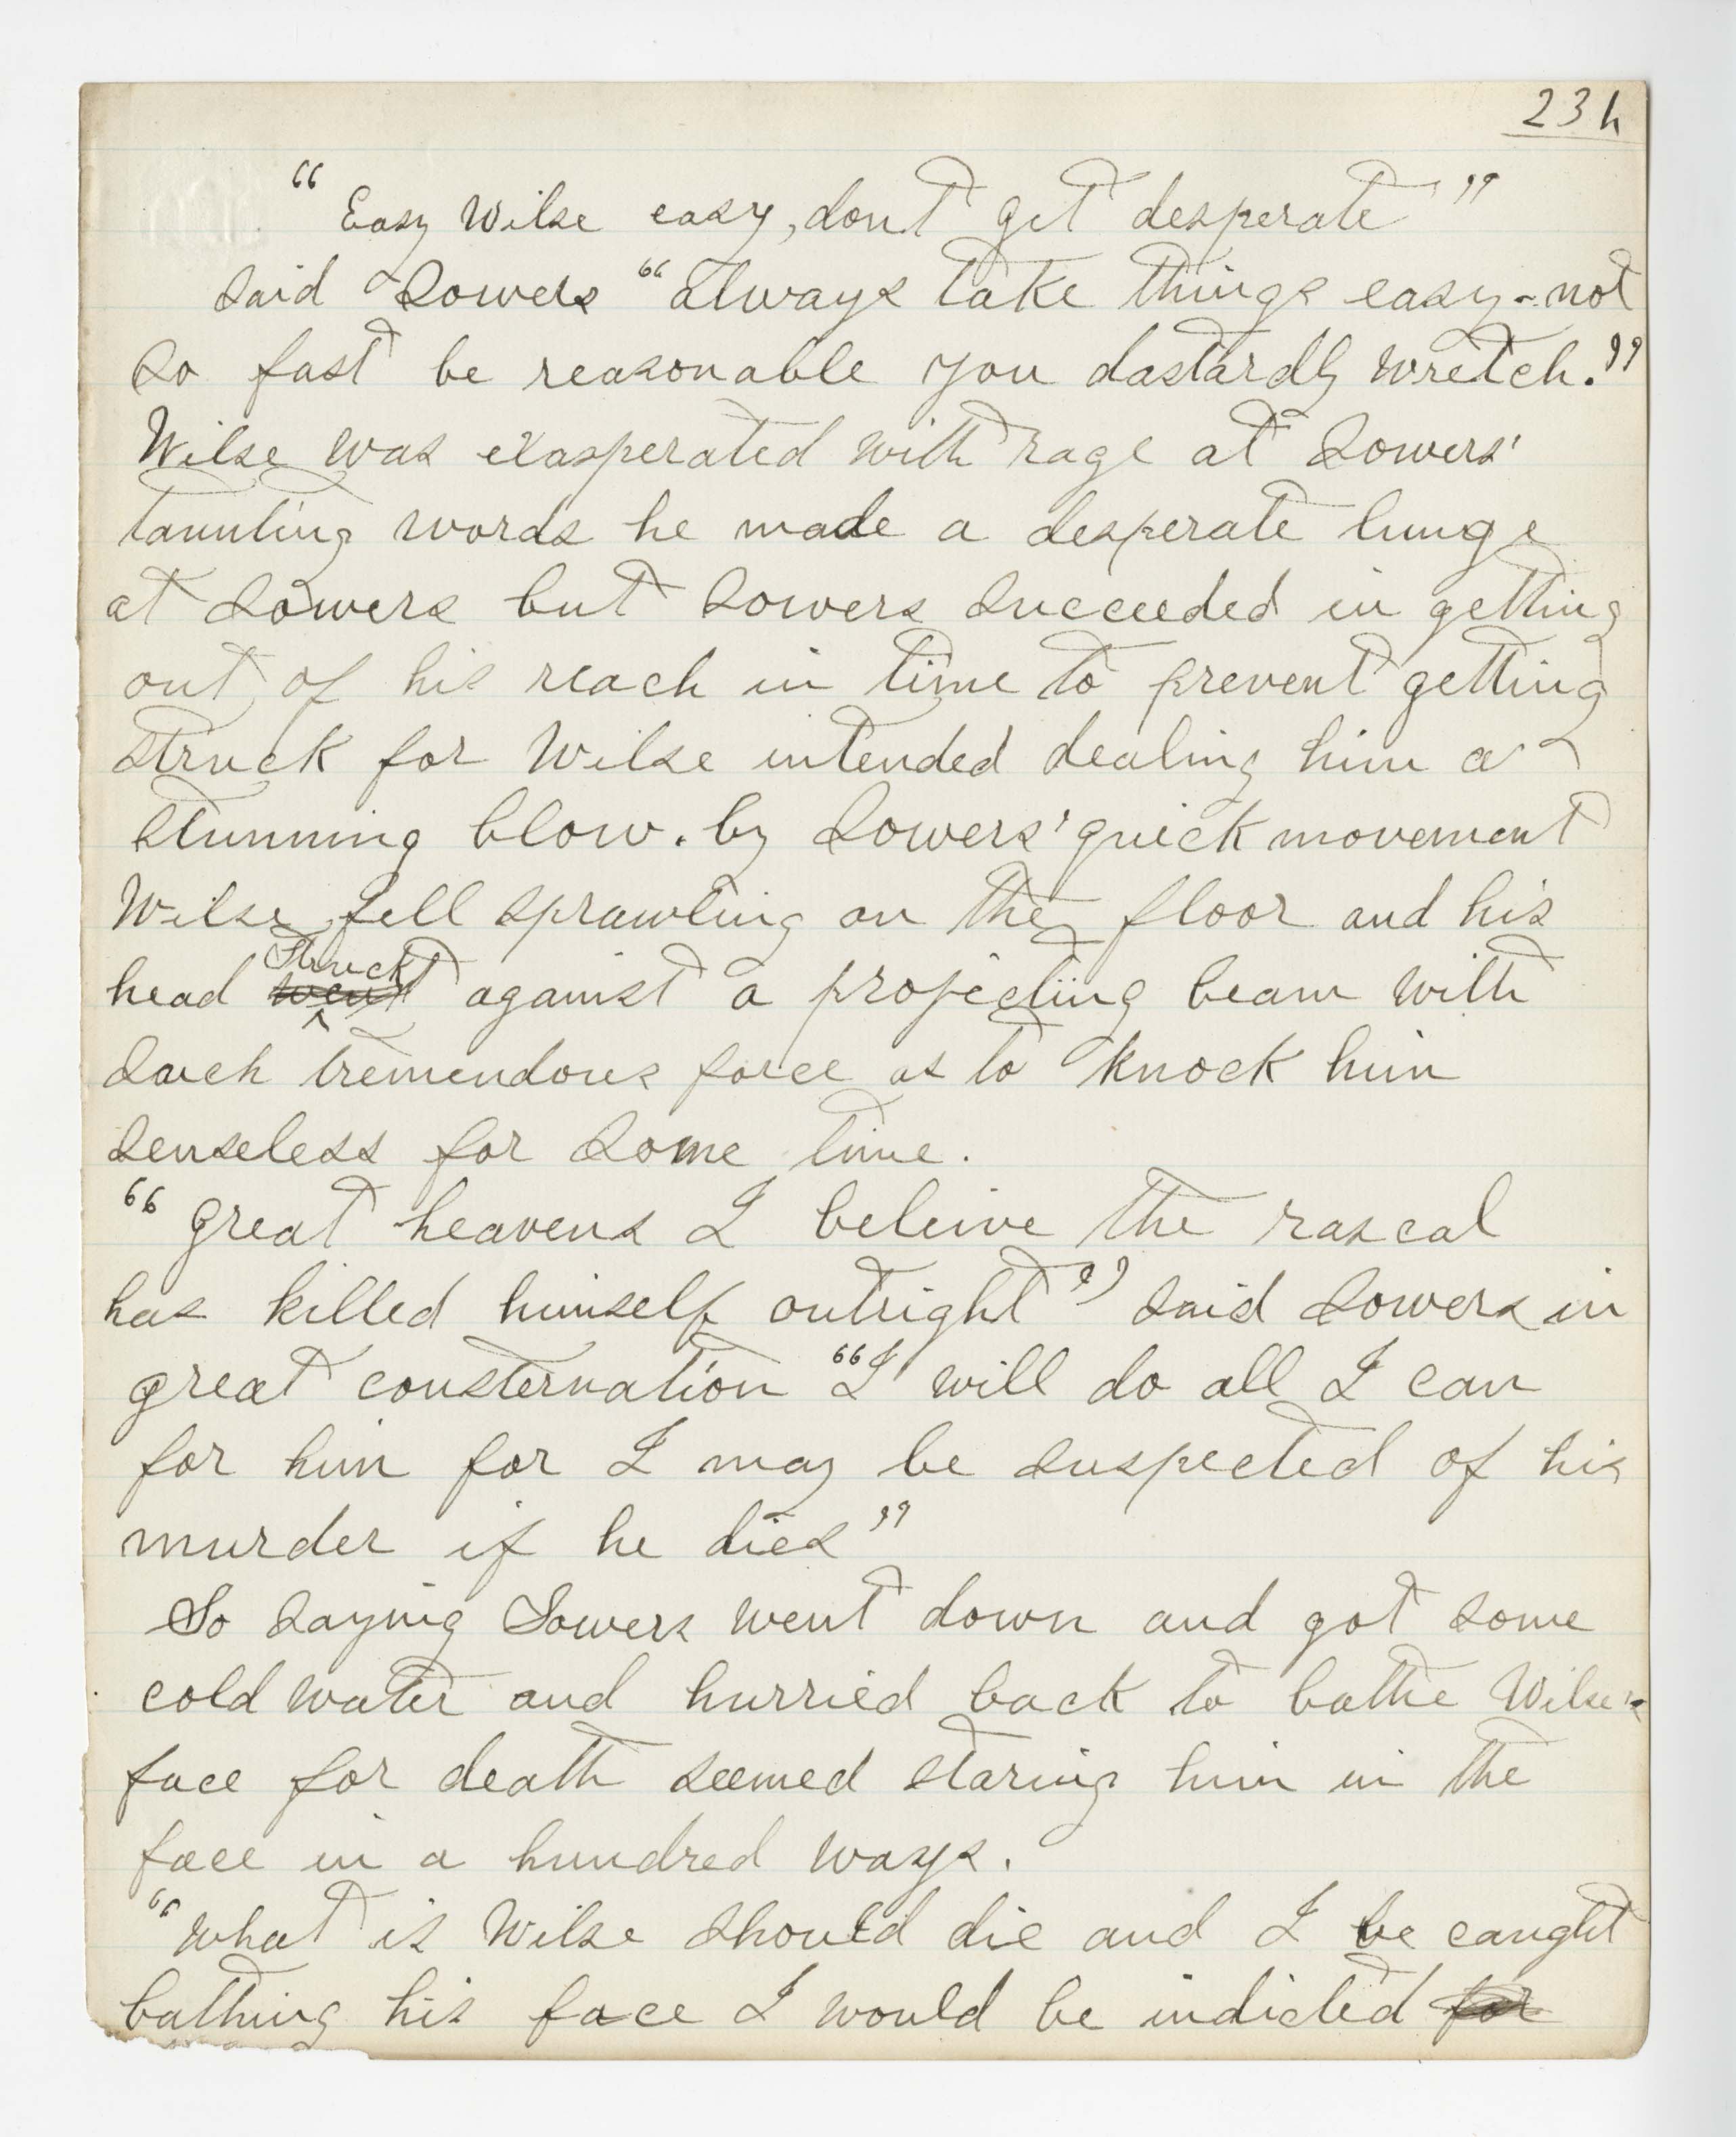 23 h
“ Easy Wilse easy, dont get desperate ”
said Sowers “always take things easy - not
so fast be reasonable you dastardly wretch.”
Wilse was exasperated with rage at Sowers'
taunting words he made a desperate lunge
at Sowers but Sowers succeeded in getting
out of his reach in time to prevent getting
struck for Wilse intended dealing him a
stunning blow. by Sowers' quick movement
Wilse fell sprawling on the floor and his
struck
head went against a projecting beam with
such tremendous force as to knock him
senseless for some time.
“ great heavens I beleive the rascal
has killed himself outright ” said Sowers in
great consternation “I will do all I can
for him for I may be suspected of his
murder if he dies ”
So saying Sowers went down and got some
cold water and hurried back to bathe Wilse's
face for death seemed staring him in the
face in a hundred ways.
“what is Wilse should die and I be caught
bathing his face I would be indicted for